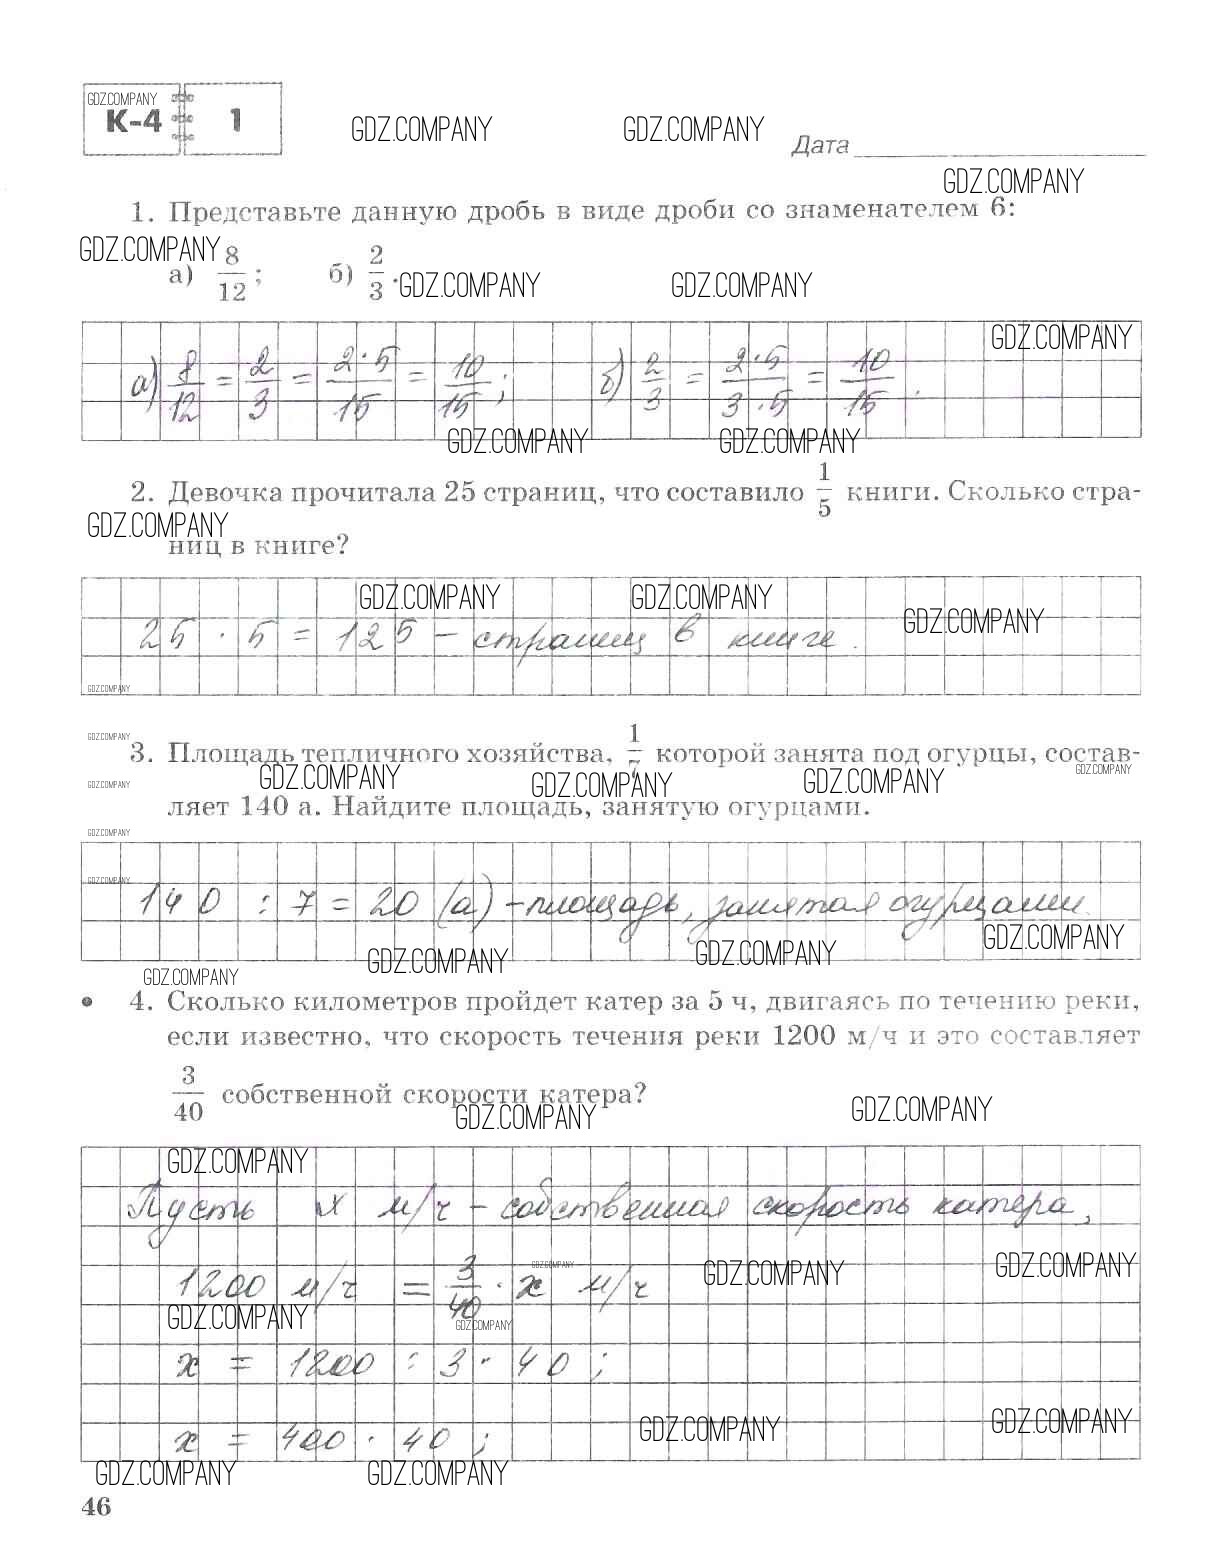 GDZ.COMPANY
К-4 1
GDZ.COMPANY GDZ.COMPANY
Дата
GDZ.COMPANY
1. Представьте данную дробь в виде дроби со знаменателем 6:
GDZ.COMPANY
а) 8/12; б) 2/3.
GDZ.COMPANY GDZ.COMPANY
GDZ.COMPANY
а) 8/12 = 2/3 = 2·5/15 = 10/15; б) 2/3 = 2·5/3·5 = 10/15.
GDZ.COMPANY GDZ.COMPANY
2. Девочка прочитала 25 страниц, что составило 1/5 книги. Сколько стра-
GDZ.COMPANY
ниц в книге?
GDZ.COMPANY GDZ.COMPANY GDZ.COMPANY
25 · 5 = 125 – страниц в книге.
GDZ.COMPANY
GDZ.COMPANY
3. Площадь тепличного хозяйства, 1/7 которой занята под огурцы, состав-
GDZ.COMPANY GDZ.COMPANY GDZ.COMPANY GDZ.COMPANY GDZ.COMPANY
ляет 140 а. Найдите площадь, занятую огурцами.
GDZ.COMPANY
GDZ.COMPANY
140 : 7 = 20 (а) – площадь, занятая огурцами.
GDZ.COMPANY GDZ.COMPANY GDZ.COMPANY
GDZ.COMPANY
• 4. Сколько километров пройдет катер за 5 ч, двигаясь по течению реки,
если известно, что скорость течения реки 1200 м/ч и это составляет
3/40 собственной скорости катера?
GDZ.COMPANY GDZ.COMPANY
GDZ.COMPANY
Пусть x м/ч – собственная скорость катера,
GDZ.COMPANY GDZ.COMPANY GDZ.COMPANY
1200 м/ч = 3/40 · x м/ч
GDZ.COMPANY GDZ.COMPANY
x = 1200 : 3 · 40;
GDZ.COMPANY GDZ.COMPANY
x = 400 · 40;
GDZ.COMPANY GDZ.COMPANY
46